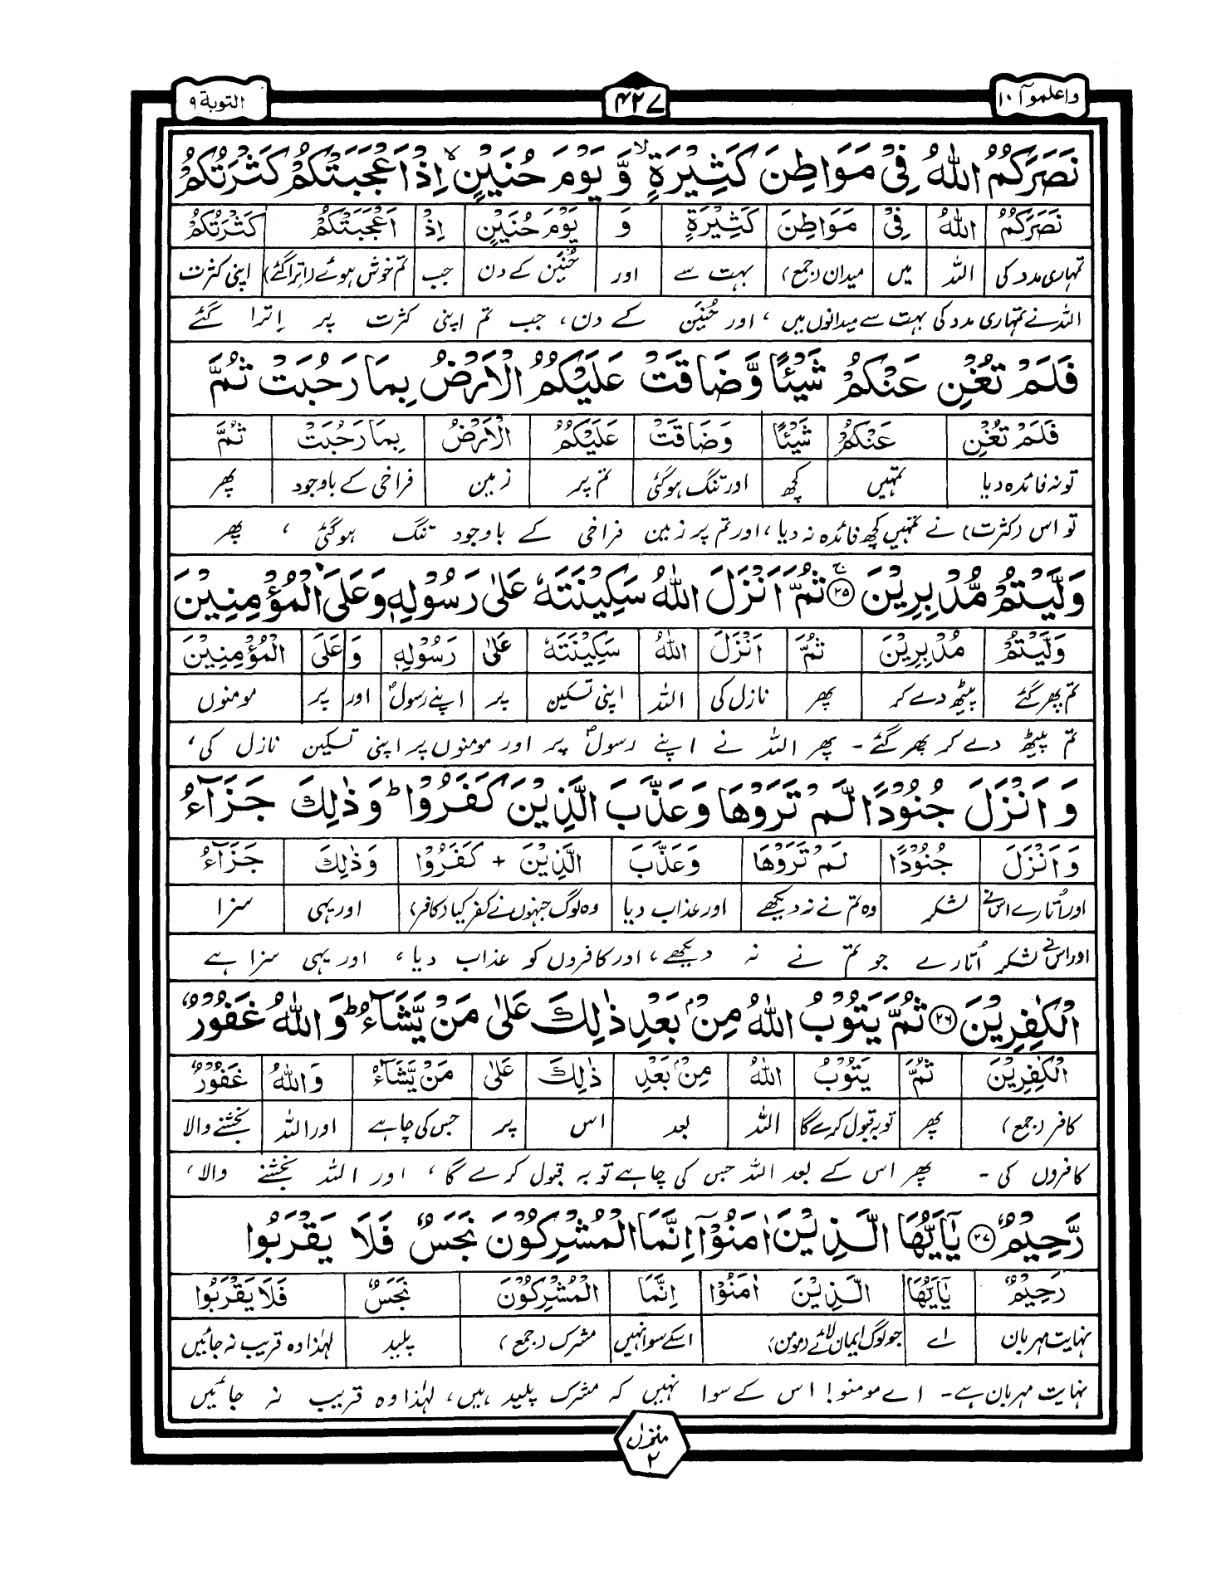 واعلموآ ١٠
۴۲۷
التوبة ٩
نَصَرَكُمُ اللّٰهُ فِيْ مَوَاطِنَ كَثِيْرَةٍ ۙ وَّ يَوْمَ حُنَيْنٍ ۙ اِذْ اَعْجَبَتْكُمْ كَثْرَتُكُمْ
نَصَرَكُمُ اللّٰهُ فِيْ مَوَاطِنَ كَثِيْرَةٍ وَ يَوْمَ حُنَيْنٍ اِذْ اَعْجَبَتْكُمْ كَثْرَتُكُمْ
تمہاری مدد کی اللہ میں میدان (جمع) بہت سے اور حُنَیْن کے دن جب تم خوش ہوئے (اترا گئے) اپنی کثرت
اللہ نے تمہاری مدد کی بہت سے میدانوں میں، اور حُنَیْن کے دن، جب تم اپنی کثرت پر اِترا گئے
فَلَمْ تُغْنِ عَنْكُمْ شَيْئًا وَّضَاقَتْ عَلَيْكُمُ الْاَرْضُ بِمَا رَحُبَتْ ثُمَّ
فَلَمْ تُغْنِ عَنْكُمْ شَيْئًا وَضَاقَتْ عَلَيْكُمُ الْاَرْضُ بِمَا رَحُبَتْ ثُمَّ
تو نہ فائدہ دیا تمہیں کچھ اور تنگ ہو گئی تم پر زمین فراخی کے باوجود پھر
تو اس (کثرت) نے تمہیں کچھ فائدہ نہ دیا، اور تم پر زمین فراخی کے باوجود تنگ ہو گئی ، پھر
وَلَّيْتُمْ مُّدْبِرِيْنَ ۚ ﴿۲۵﴾ ثُمَّ اَنْزَلَ اللّٰهُ سَكِيْنَتَهٗ عَلٰى رَسُوْلِهٖ وَعَلَى الْمُؤْمِنِيْنَ
وَلَّيْتُمْ مُدْبِرِيْنَ ثُمَّ اَنْزَلَ اللّٰهُ سَكِيْنَتَهٗ عَلٰى رَسُوْلِهٖ وَ عَلَى الْمُؤْمِنِيْنَ
تم پھر گئے پیٹھ دے کر پھر نازل کی اللہ اپنی تسکین پر اپنے رسولؐ اور پر مومنوں
تم پیٹھ دے کر پھر گئے ۔ پھر اللہ نے اپنے رسولؐ پر اور مومنوں پر اپنی تسکین نازل کی،
وَ اَنْزَلَ جُنُوْدًا لَّمْ تَرَوْهَا وَعَذَّبَ الَّذِيْنَ كَفَرُوْا ؕ وَذٰلِكَ جَزَآءُ
وَ اَنْزَلَ جُنُوْدًا لَمْ تَرَوْهَا وَعَذَّبَ الَّذِيْنَ + كَفَرُوْا وَذٰلِكَ جَزَآءُ
اور اُتارے اس نے لشکر وہ تم نے نہ دیکھے اور عذاب دیا وہ لوگ جنہوں نے کفر کیا (کافر) اور یہی سزا
اور اس نے لشکر اُتارے جو تم نے نہ دیکھے، اور کافروں کو عذاب دیا، اور یہی سزا ہے
الْكٰفِرِيْنَ ﴿۲۶﴾ ثُمَّ يَتُوْبُ اللّٰهُ مِنْۢ بَعْدِ ذٰلِكَ عَلٰى مَنْ يَّشَآءُ ؕ وَ اللّٰهُ غَفُوْرٌ
الْكٰفِرِيْنَ ثُمَّ يَتُوْبُ اللّٰهُ مِنْۢ بَعْدِ ذٰلِكَ عَلٰى مَنْ يَّشَآءُ وَاللّٰهُ غَفُوْرٌ
کافر (جمع) پھر توبہ قبول کرے گا اللہ بعد اس پر جس کی چاہے اور اللہ بخشنے والا
کافروں کی ۔ پھر اس کے بعد اللہ جس کی چاہے توبہ قبول کرے گا، اور اللہ بخشنے والا،
رَّحِيْمٌ ﴿۲۷﴾ يٰۤاَيُّهَا الَّذِيْنَ اٰمَنُوْۤا اِنَّمَا الْمُشْرِكُوْنَ نَجَسٌ فَلَا يَقْرَبُوا
رَحِيْمٌ يٰۤاَيُّهَا الَّذِيْنَ اٰمَنُوْا اِنَّمَا الْمُشْرِكُوْنَ نَجَسٌ فَلَا يَقْرَبُوا
نہایت مہربان اے جو لوگ ایمان لائے (مومن) اسکے سوا نہیں مشرک (جمع) پلید لہٰذا وہ قریب نہ جائیں
نہایت مہربان ہے۔ اے مومنو! اس کے سوا نہیں کہ مشرک پلید ہیں، لہٰذا وہ قریب نہ جائیں
منزل
۲